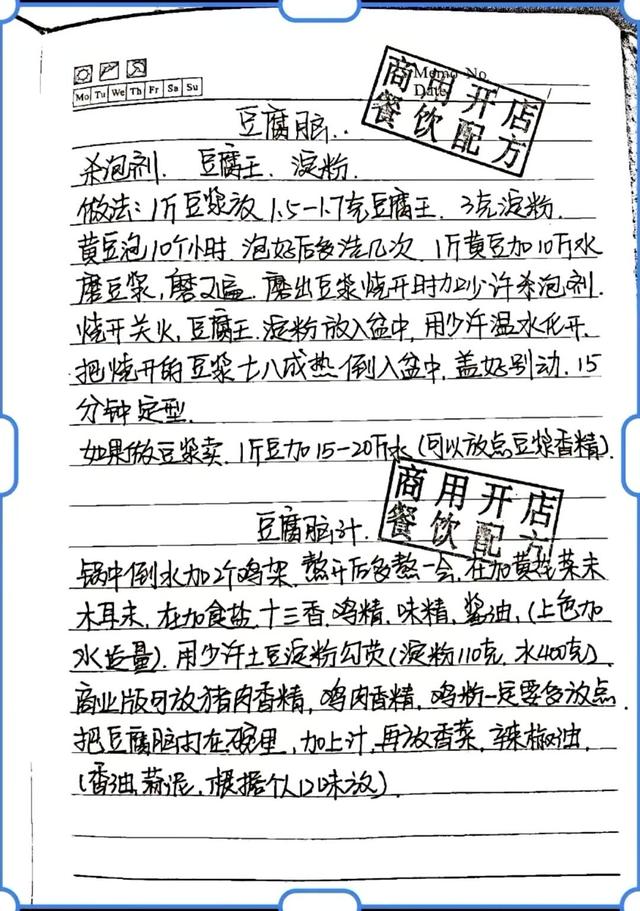 Memo No.
Date
Mo Tu We Th Fr Sa Su
商用开店
餐饮配方
豆腐脑..
杀泡剂. 豆腐王. 淀粉.
做法:1斤豆浆放 1.5-1.7克豆腐王. 3克淀粉.
黄豆泡10个小时. 泡好后多洗几次. 1斤黄豆加10斤水
磨豆浆,磨2遍. 磨出豆浆烧开时加少许杀泡剂.
烧开关火,豆腐王.淀粉放入盆中,用少许温水化开.
把烧开的豆浆七八成热倒入盆中,盖好别动.15
分钟定型.
如果做豆浆卖. 1斤豆加15-20斤水(可以放点豆浆香精).
商用开店
餐饮配方
豆腐脑汁.
锅中倒水加2个鸡架.熬开后多熬一会,在加黄花菜末
木耳末,在加食盐.十三香.鸡精.味精.酱油,(上色加
水适量).用少许土豆淀粉勾芡(淀粉110克.水400克).
商业版可放猪肉香精,鸡肉香精,鸡粉一定要多放点.
把豆腐脑打在碗里,加上汁,再放香菜.辣椒油.
(香油.蒜泥.根据个人口味放).